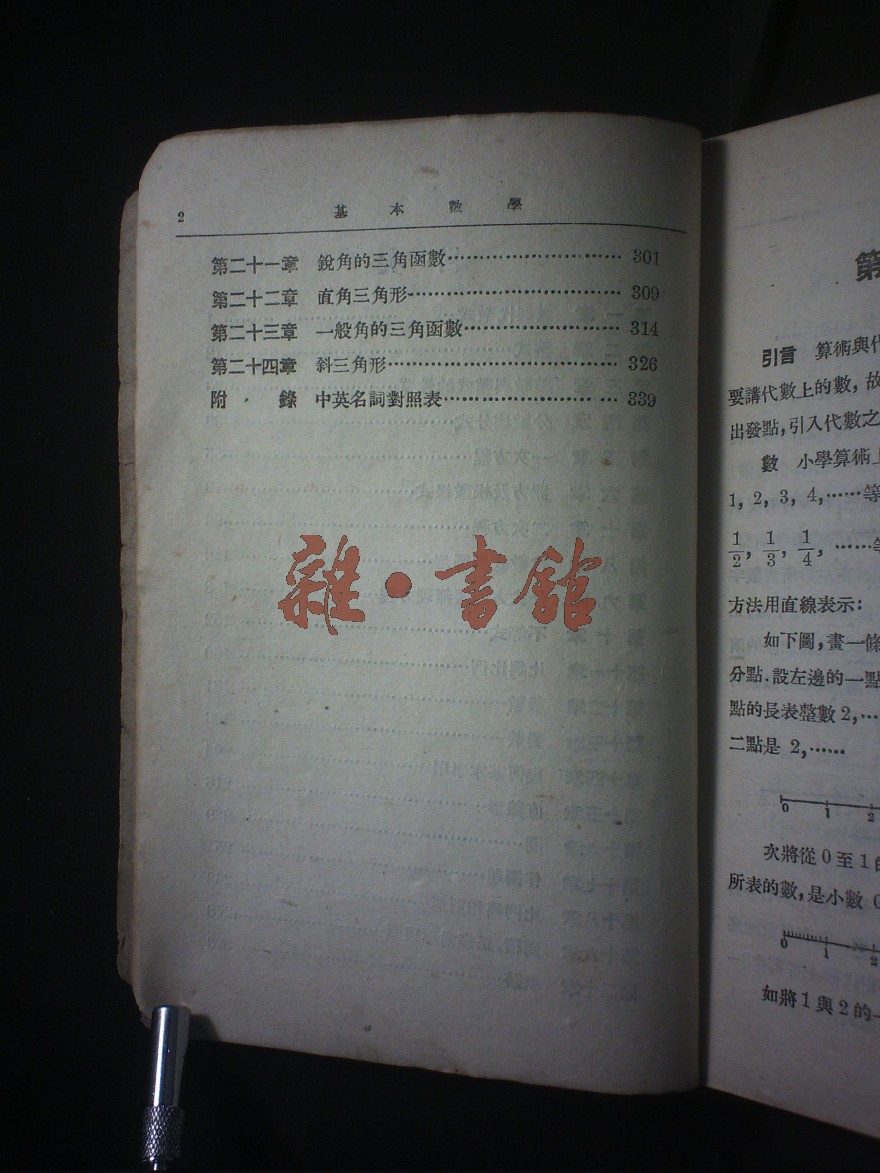 2 基本數學
第二十一章 銳角的三角函數……………………… 301
第二十二章 直角三角形……………………………… 309
第二十三章 一般角的三角函數……………………… 314
第二十四章 斜三角形………………………………… 326
附·錄 中英名詞對照表……………………… 339
雜·書館
第
引言 算術與代
要講代數上的數，故
出發點，引入代數之
數 小學算術上
1, 2, 3, 4, ……等
1/2, 1/3, 1/4, ……等
方法用直線表示：
如下圖，畫一條
分點．設左邊的一點
點的長表整數 2, …
二點是 2, ……
0 1 2
次將從 0 至 1 的
所表的數，是小數 0
0 1 2
如將 1 與 2 的